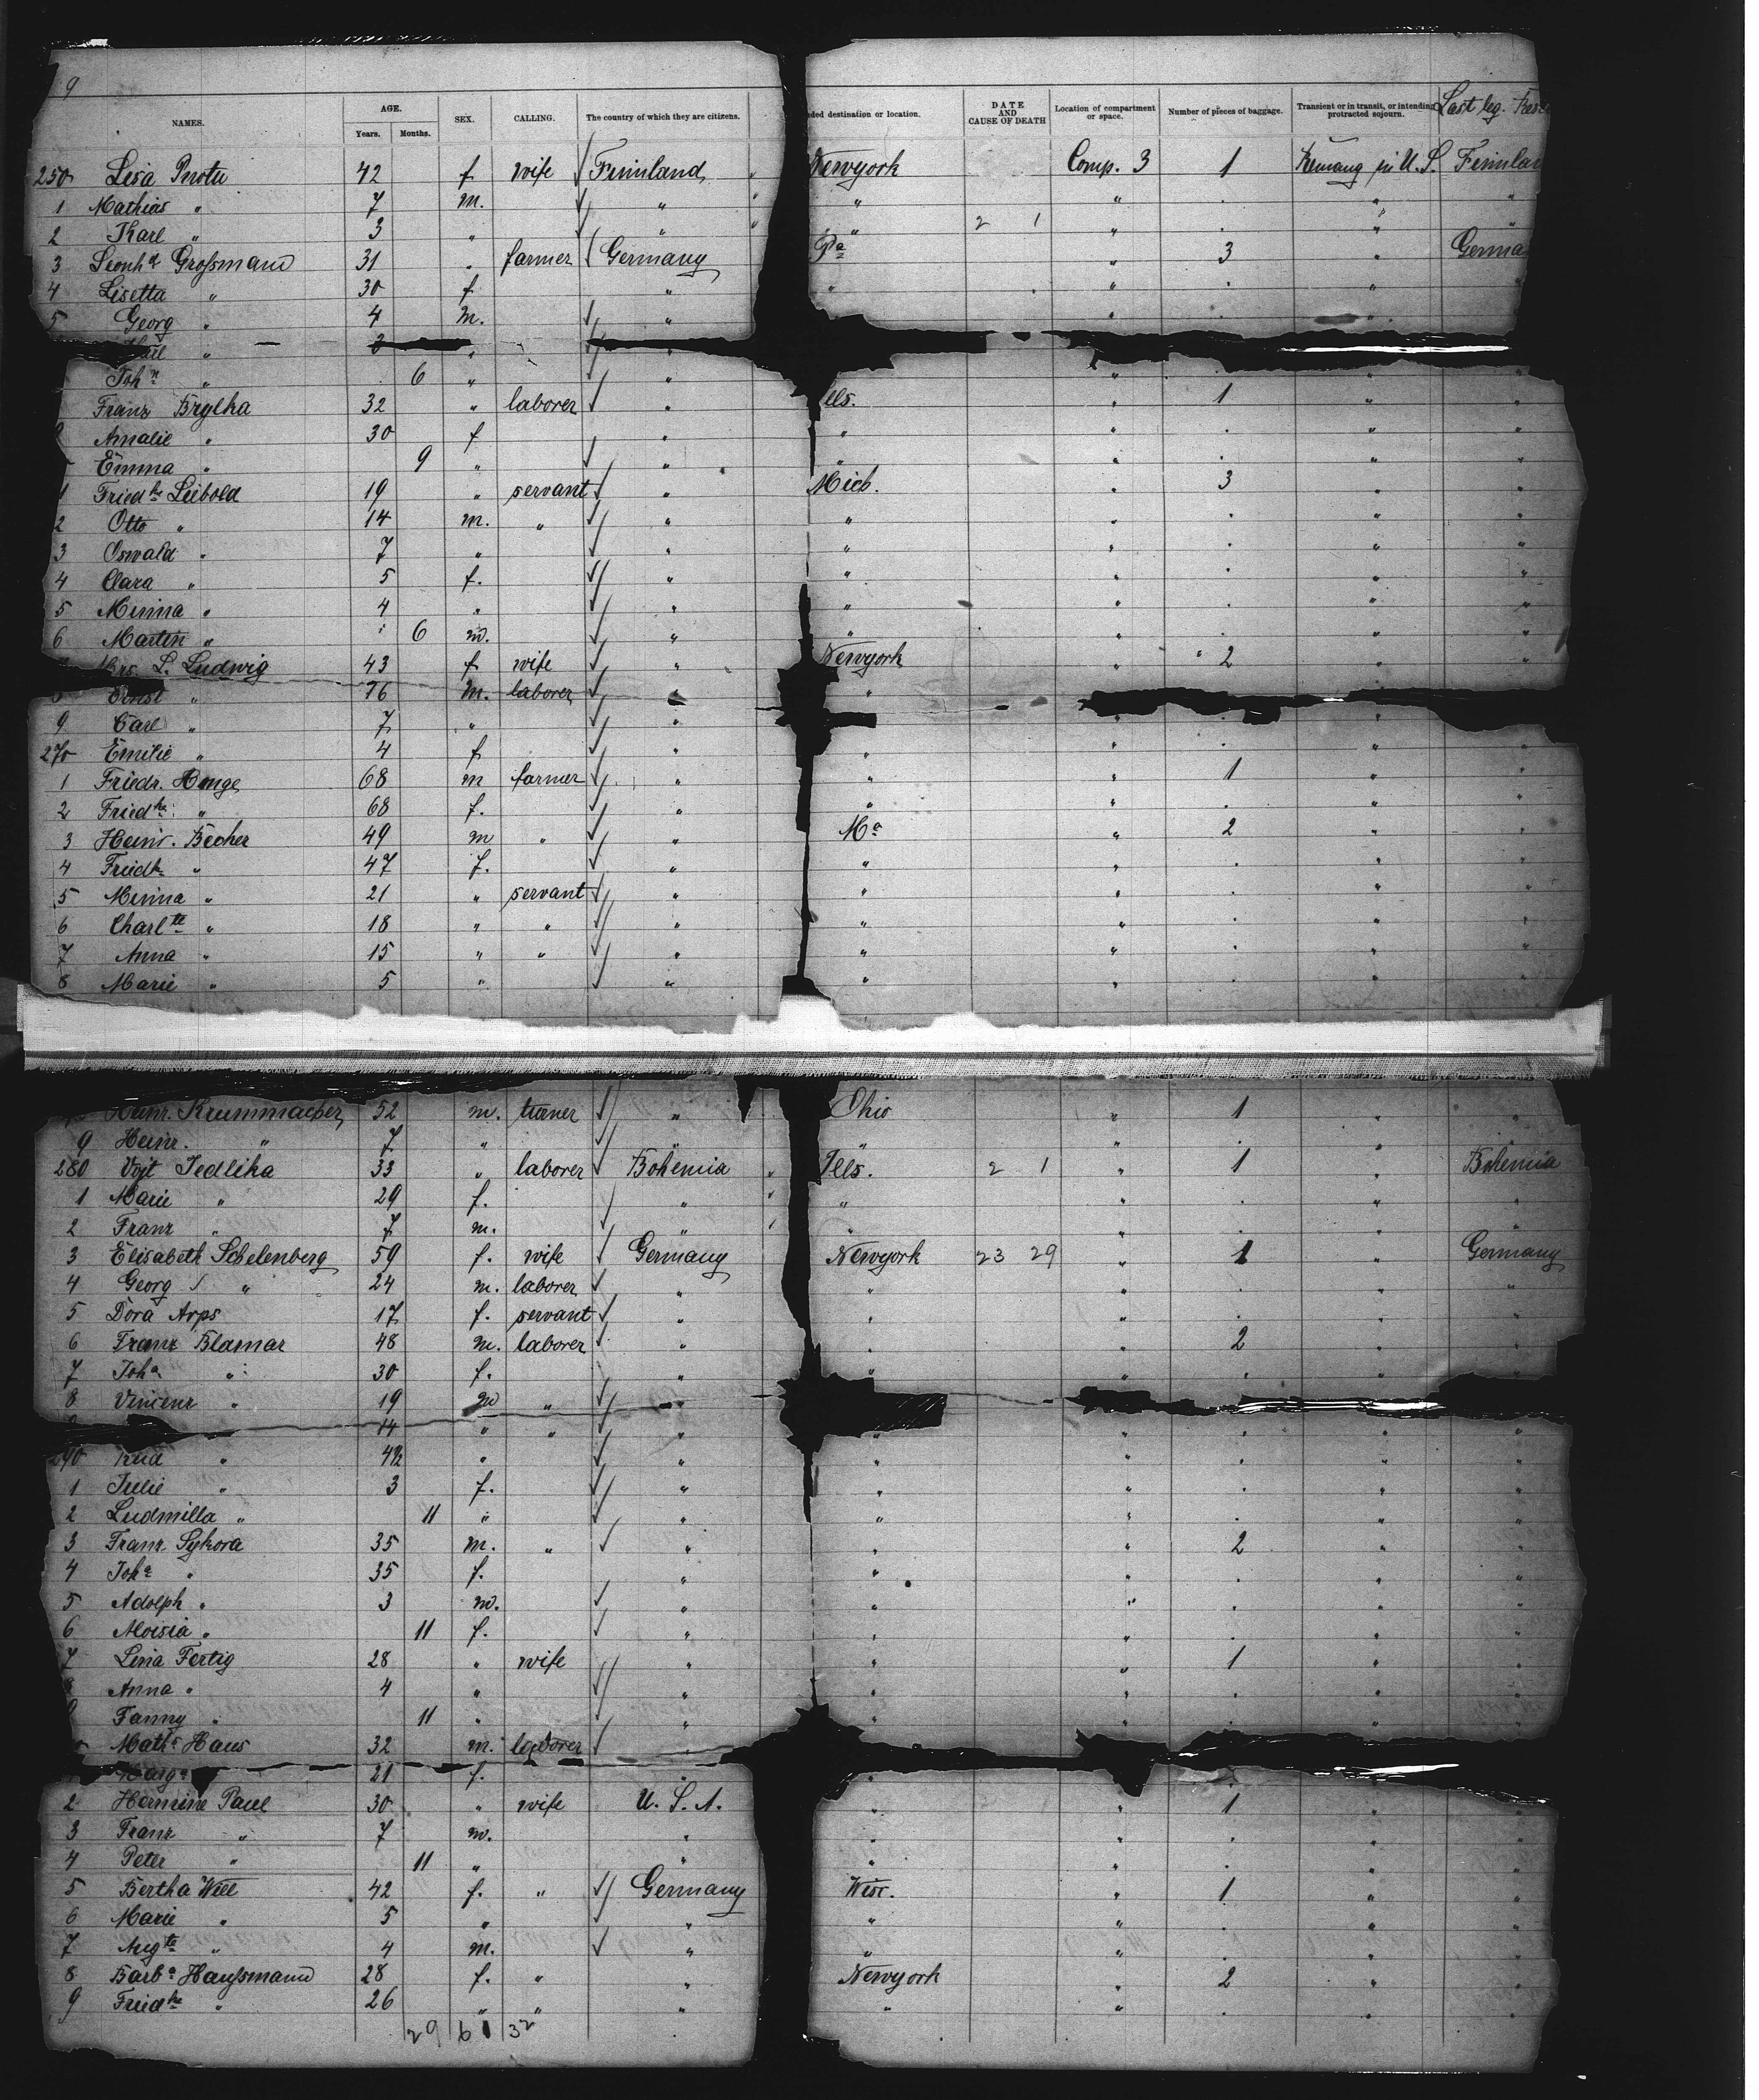 9
NAMES. AGE. Years. Months. SEX. CALLING. The country of which they are citizens. ded destination or location. DATE AND CAUSE OF DEATH Location of compartment or space. Number of pieces of baggage. Transient or in transit, or intending protracted sojourn. Last leg.
250 Lisa 42 f wife Finnland " Newyork Comp. 3 1 in U.S. Finnlan
1 Mathias " 7 m. " " " " . " "
2 Karl " 3 " " " " 2 1 " . " "
3 Leonhd Großmann 31 " farmer Germany Pa " 3 " Germa
4 Lisetta " 30 f " " " . " "
5 Georg " 4 m. " " . "
"
John " 6 " " " . " "
Franz Brylka 32 " laborer " Ills. " 1 " "
Amalie " 30 f " " " . " "
Emma " 9 " " " " . " "
1 Friedke Leibold 19 " servant " Mich. " 3 " "
2 Otto " 14 m. " " " " . " "
3 Oswald " 7 " " " " . " "
4 Clara " 5 f. " " " . " "
5 Minna " 4 " " " " . " "
6 Martin " 6 m. " " " . " "
Mrs. L. Ludwig 43 f wife " Newyork " 2 " "
8 Ernst " 76 m. laborer " "
9 Carl " 7 " " " . " "
270 Emilie " 4 f " " " . " "
1 Friedr. Runge 68 m farmer " " " 1 " "
2 Friedke " 68 f. " " " . " "
3 Heinr. Becher 49 m " " Ma " 2 " "
4 Friedke " 47 f. " " " . " "
5 Minna " 21 " servant " " " . " "
6 Charlte " 18 " " " " " . " "
7 Anna " 15 " " " " " . " "
8 Marie " 5 " " " " . " "
Heinr. Krummacher 52 m. turner " Ohio " 1 " "
9 Heinr. " 7 " " " " . " "
280 Vojt Jedlika 33 " laborer Bohemia " Ills. 2 1 " 1 " Bohemia
1 Marie " 29 f. " " " " . " "
2 Franz " 7 m. " " " " . " "
3 Elisabeth Schelenberg 59 f. wife Germany Newyork 23 29 " 1 " Germany
4 Georg " 24 m. laborer " " " . " "
5 Dora Arps 17 f. servant " " " . " "
6 Franz Blamar 48 m. laborer " " " 2 " "
7 Joha " 30 f. " " " . " "
8 Vincenz " 19 m " "
14 " " " " . " "
290 " 4½ " " " " . " "
1 Julie " 3 f. " " " . " "
2 Ludmilla " 11 " " " " . " "
3 Franz Sykora 35 m. " " " " 2 " "
4 Joha " 35 f. " " " . " "
5 Adolph " 3 m. " " " . " "
6 Aloisia " 11 f. " " " . " "
7 Lina Fertig 28 " wife " " " 1 " "
Anna " 4 " " " " . " "
Fanny " 11 " " " " . " "
Maths Haus 32 m. laborer "
21 f. " "
2 Hermine Paul 30 " wife U. S. A. " " 1 " "
3 Franz " 7 m. " " " . " "
4 Peter " 11 " " " " . " "
5 Bertha Will 42 f. " Germany Wisc. " 1 " "
6 Marie " 5 " " " " . " "
7 Augte " 4 m. " " " . " "
8 Barba Haußmann 28 f. " " Newyork " 2 " "
9 Friedke " 26 " " " " " . " "
29 61 32